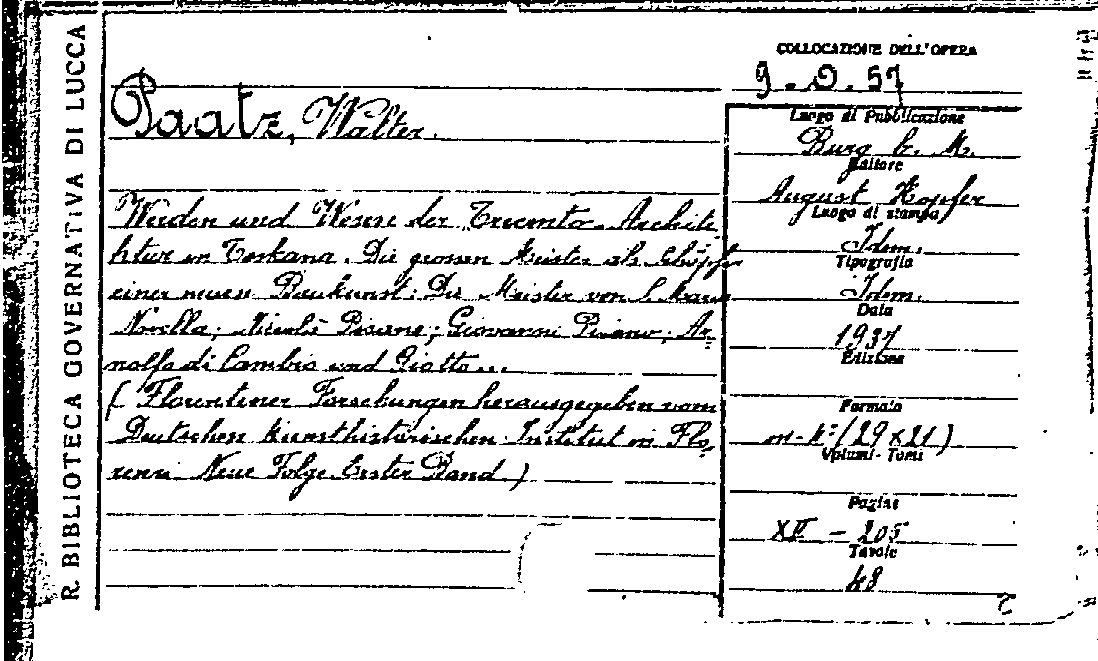 R. BIBLIOTECA GOVERNATIVA DI LUCCA
COLLOCAZIONE DELL'OPERA
9 - O. 57
Paatz, Walter.
Werden und Wesen der Trecento-Archite-
ktur in Toskana. Die grossen Meister als Schöpfer
einer neuen Baukunst: Die Meister von S. Maria
Novella; Nicolò Pisano; Giovanni Pisano; Ar-
nolfo di Cambio und Giotto...
(Florentiner Forschungen herausgegeben vom
Deutschen Kunsthistorischen Institut in Flo-
renz. Neue Folge Erster Band)
Luogo di Pubblicazione
Burg b. M.
Editore
August Hopfer
Luogo di stampa
Idem.
Tipografia
Idem.
Data
1937
Edizione
Formato
in-4° (29 x 21)
Volumi - Tomi
Pagine
XV - 205
Tavole
48